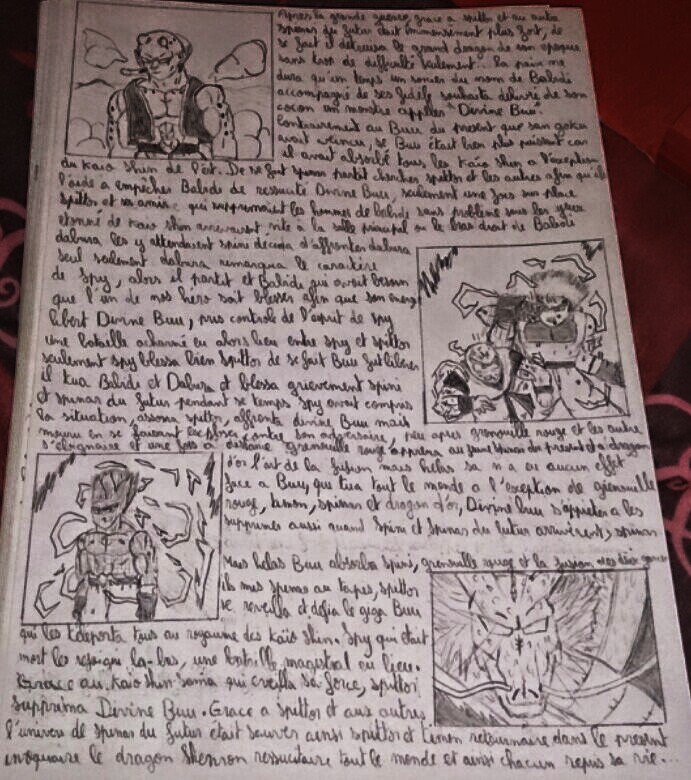 Après la grande guerre, grace a spittor et au autre
spinas du futur était immensement plus fort, de
se fait il détruisa le grand dragon de son époque
sans trop de difficulté seulement... la paix ne
dura qu'un temps un sorcier du nom de Babidi
accompagné de ses fidèle souhaita délivré de son
cocon un monstre appeler "Devine Buu".
Contrairement au Buu du présent que san goku
avait vaincu, se Buu était bien plus puissant car
il avait absorbé tous les Kaïo shin a l'exception
du Kaïo shin de l'est. De se fait spinas partit chercher spittor et les autres afin qu'ils
l'aide a empêcher Babidi de ressucité Devine Buu, seulement une fois sur place
spittor et sa amis qui supprimaient les hommes de babidi sans problème sous les yeux
étonné de Kaio shin arrivairent vite a la salle principal ou le bras droit de Babidi
dabura les y attendaient spini décida d'affronter dabura
seul seulement dabura remarqua le caractère
de Spy, alors il partit et Babidi qui avait besoin
que l'un de nos héro soit blesser afin que son énergi
libert Devine Buu, pris controle de l'esprit de spy
une bataille acharné eu alors lieu entre spy et spittor
seulement spy blessa bien spittor de se fait Buu fut libérer
il tua Babidi et Dabura et blessa grievement spini
et spinas du futur pendant se temps Spy avait compris
la situation, assoma spittor, affronta devine Buu mais
mouru en se faisant exploser contre son adversaire, peu apres grenouille rouge et les autre
s'éloignaire et une fois a distance grenouille rouge apprena au jeune spinas du présent et a dragon
d'or l'art de la fusion mais helas sa n'a eu aucun effet
face a Buu, qui tua tout le monde a l'exception de grenouille
rouge, timon, spinas et dragon d'or, Devine Buu s'appreter a les
supprimés aussi quand Spini et Spinas du futur arrivèrent, spinas
Mais helas Buu absorba spini, grenouille rouge et la fusion des deux
ils mis spinas au tapis, spittor
se reveilla et défia le giga Buu
qui les téléporta tous au royaume des Kaïö shin. Spy qui était
mort les rejoigna la-bas, une bataille magistral eu lieu.
Grace au Kaïo shin Sama qui éveilla sa force, spittor
supprima Devine Buu. Grace a spittor et aux autres
l'univers de spinas du futur était sauver ainsi spittor et timon retournaire dans le présent
invoquaire le dragon Shenron ressucitaire tout le monde et ainsi chacun repris sa vie...